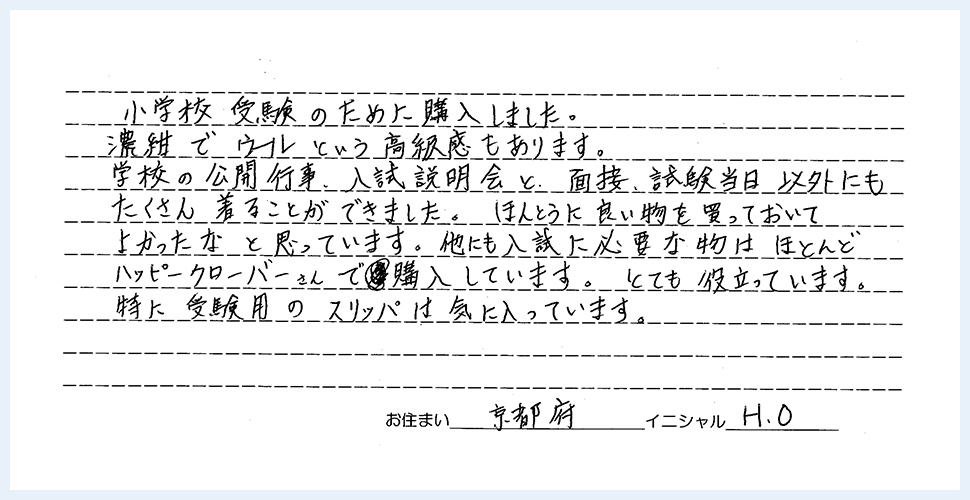 小学校 受験のために購入しました。
濃紺で ウールという高級感もあります。
学校の公開行事、入試説明会と、面接、試験当日以外にも
たくさん着ることができました。ほんとうに良い物を買っておいて
よかったなと思っています。他にも入試に必要な物はほとんど
ハッピークローバーさんで購入しています。とても役立っています。
特に受験用のスリッパは気に入っています。
お住まい 京都府 イニシャル H.O